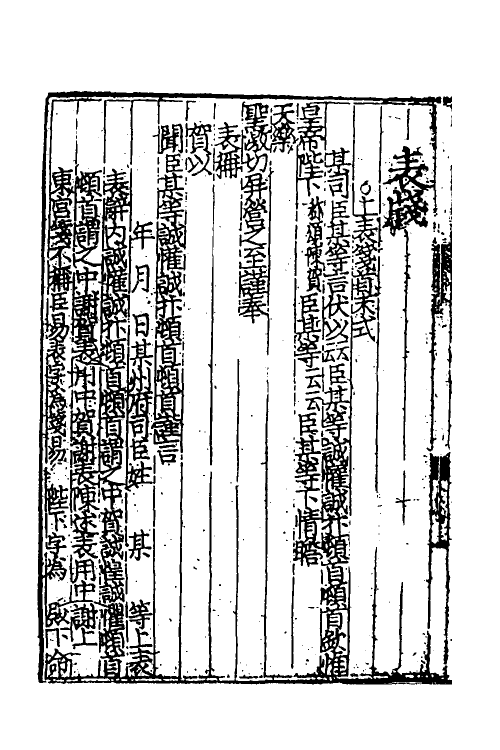 表牋
○上表牋首末式
某司臣某等言伏以云云臣某等誠懽誠忭頓首頓首欽惟
皇帝陛下稱頌陳賀臣某等云云臣某等下情瞻
天樂
聖激切屏營之至謹奉
表稱
賀以
聞臣某等誠懽誠忭頓首頓首謹言
年 月 日某州府司臣姓 某 等上表
表辭内誠懽誠忭頓首頓首謂之中賀誠惶誠懼頓首
頓首謂之中謝賀表用中賀謝表陳情表用中謝上
東宮牋不稱臣易表字為牋易 陛下字為 殿下命